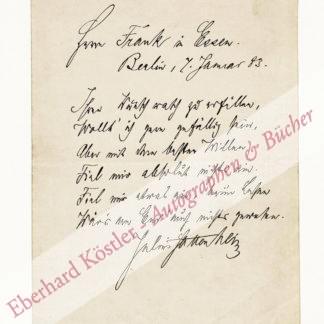 Herrn Frank in Essen.
Berlin, 7. Januar 83.
Ihren Wunsch rasch zu erfüllen,
Wollt' ich gern gefällig sein,
Aber mit dem besten Willen
Fiel mir absolut nichts ein.
Fiel mir etwas ein, beim
Wär's am End' auch nichts gewesen.
Julius Stettenheim
Eberhard Köstler - Autographen & Bücher